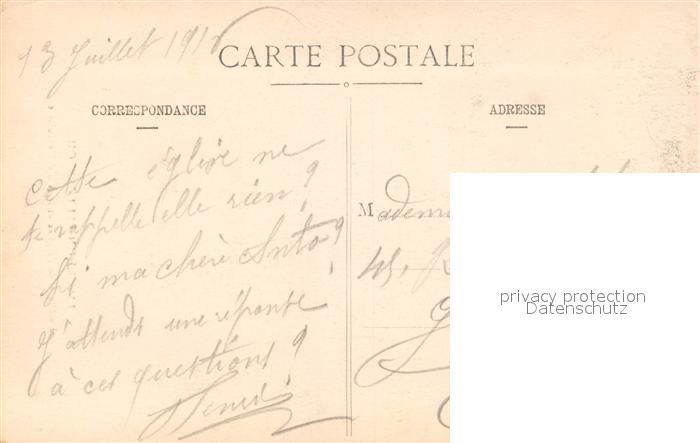 13 Juillet 191
CARTE POSTALE
CORRESPONDANCE
ADRESSE
cette église ne
te rappelle elle rien?
Si ma chère Anto?
J'attends une réponse
à ces questions?
Madem
45, R
privacy protection
Datenschutz